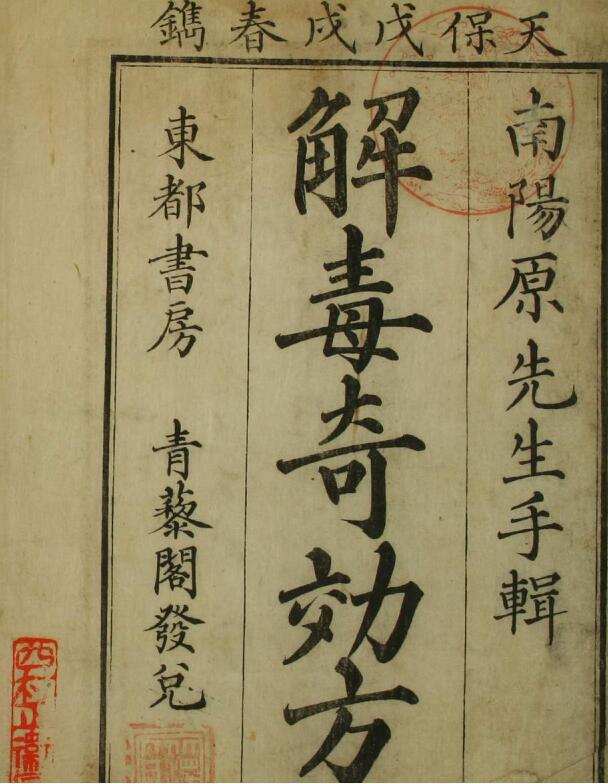 天保戊戌春鐫
南陽原先生手輯
解毒奇効方
東都書房 青藜閣發兌